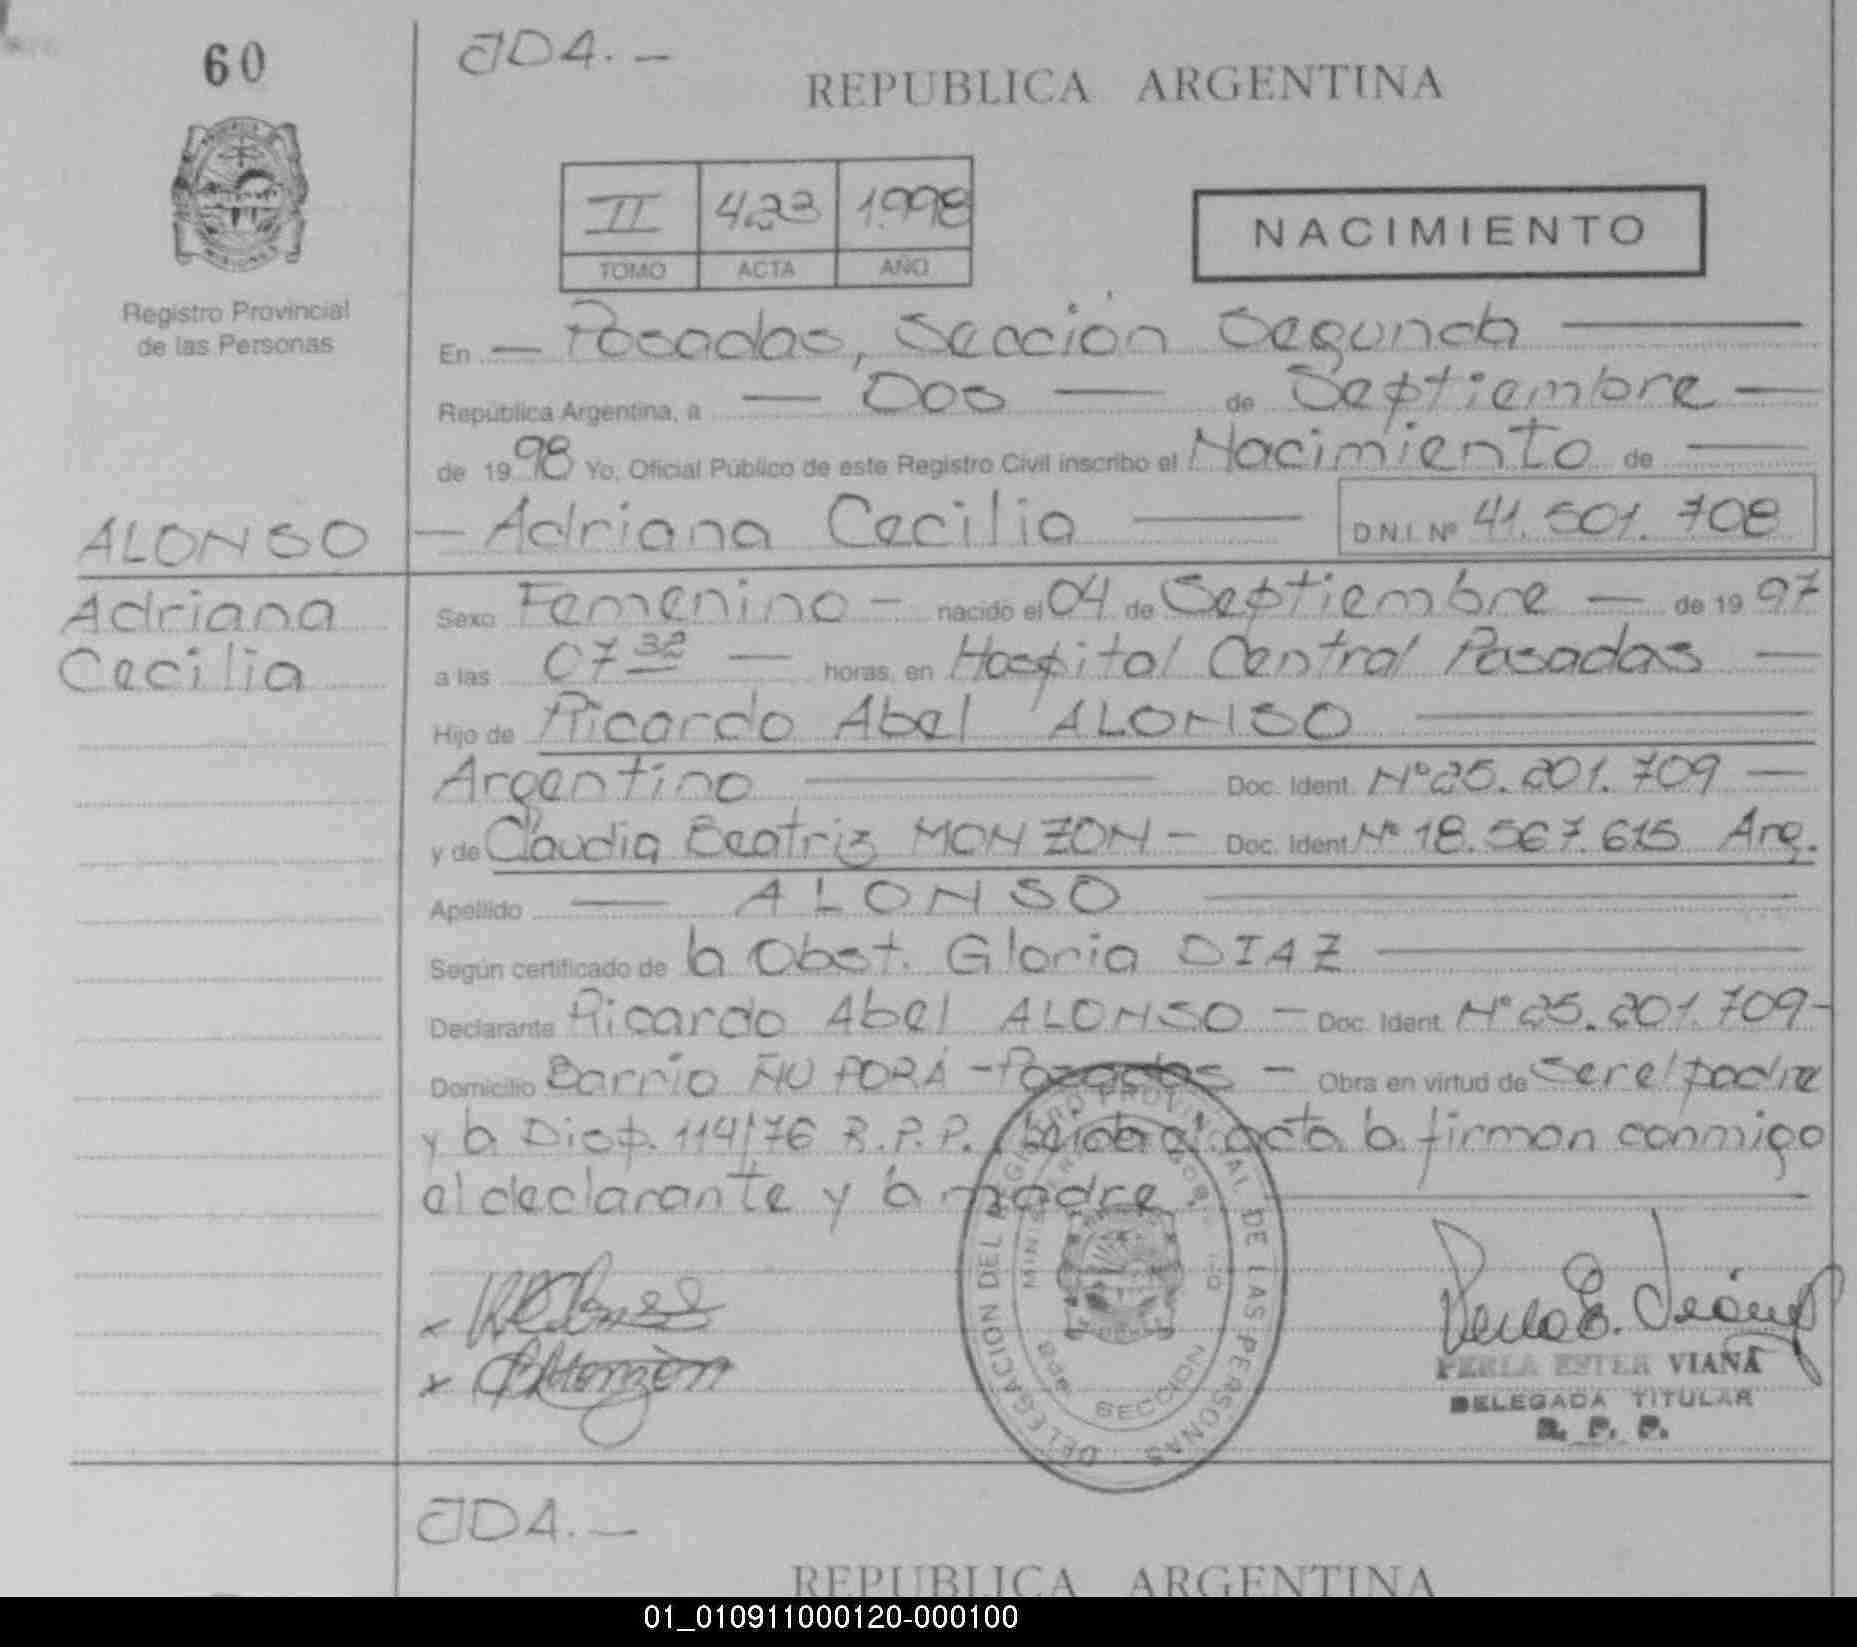 60
JDA.-
REPUBLICA ARGENTINA
II 423 1998
TOMO ACTA AÑO
NACIMIENTO
Registro Provincial
de las Personas
En — Posadas, Sección Segunda —
República Argentina, a — Dos — de Septiembre —
de 1998 Yo, Oficial Público de este Registro Civil inscribo el Nacimiento de —
ALONSO — Adriana Cecilia — D.N.I. Nº 41.501.708
Adriana
Cecilia
Sexo Femenino — nacido el 04 de Septiembre — de 1997
a las 07 32 — horas, en Hospital Central Posadas —
Hijo de Ricardo Abel ALONSO —
Argentino — Doc. Ident. Nº 25.201.709 —
y de Claudia Beatriz MONZON — Doc. Ident. Nº 18.567.615 Arg.
Apellido — ALONSO —
Según certificado de la Obst. Gloria DIAZ —
Declarante Ricardo Abel ALONSO — Doc. Ident. Nº 25.201.709 -
Domicilio Barrio ÑU PORÁ - Posadas — Obra en virtud de ser el padre
y la Disp. 114/76 R.P.P. Leida el acta la firman conmigo
el declarante y la madre. —
DELEGACION DEL REGISTRO PROVINCIAL DE LAS PERSONAS
SECCION
x
x Monzón
PERLA ESTER VIANA
DELEGADA TITULAR
R. P. P.
JDA.-
REPUBLICA ARGENTINA
01_010911000120-000100